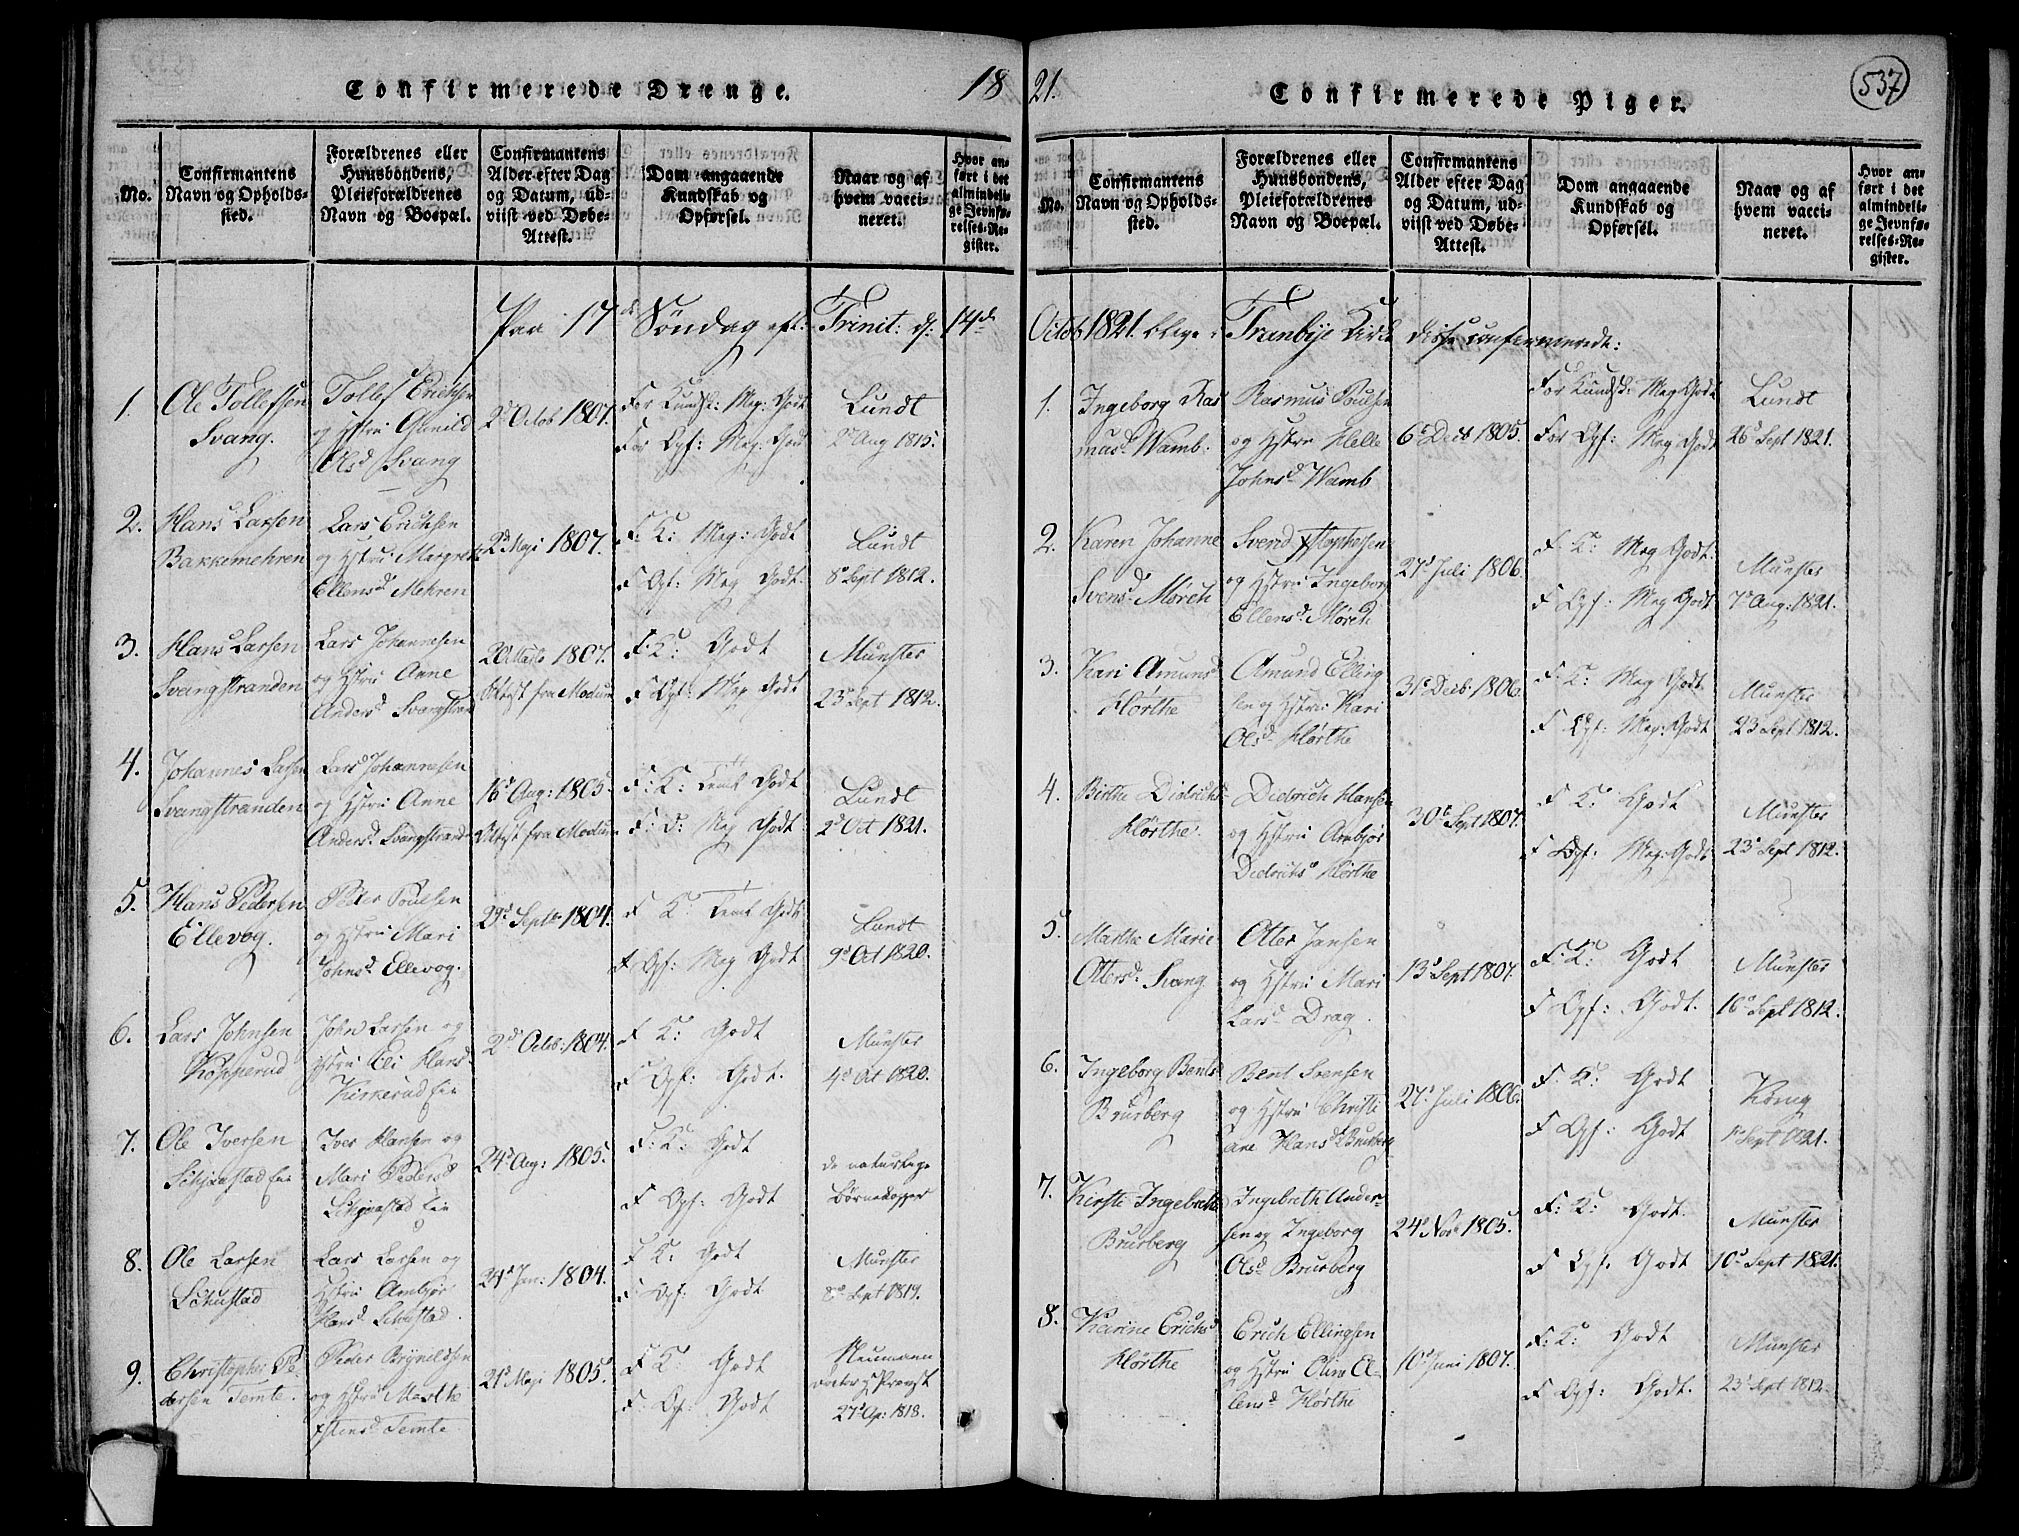 Confirmerede Drenge.
18
No.
Confirmantens Navn og Opholds-sted.
Forældrenes eller Huusbondens, Pleieforældrenes Navn og Boepæl.
Confirmantens Alder efter Dag og Datum, ud-viist ved Døbe-Attest.
Dom angaaende Kundskab og Opførsel.
Naar og af hvem vacci-neret.
Hvor an-ført i det almindeli-ge Jevnfø-relses-Re-gister.
Paa 17de Søndag eft: Trinit: d: 14de
1.
Ole Tollefsen
Svang.
Tollef Erichsen
og Hstru Gunild
Olsd Svang
2d Octob 1807.
For Kundsk: Meg: Godt
For Opf: Meg: Godt
Lundt
2d Aug 1815.
2.
Hans Larsen
Bakkemehren
Lars Erichsen
og Hstru Margrete
Ellensd Mehren
2d Maji 1807.
F. K: Meg: Godt
F Opf: Meg Godt.
Lundt
8d Sept 1812.
3.
Hans Larsen
Svangstranden
Lars Johannesen
og Hstru Anne
Andersd Svangstran
20 Marts 1807.
Attest fra Modum
F. K: Godt
F Opf: Meg Godt
Munster
23d Sept 1812.
4.
Johannes Larsen
Svangstranden
Lars Johannesen
og Hstru Anne
Andersd Svangstrande
16d Aug: 1805.
Attest fra Modum
F. K: Teml Godt
F. O: Meg Godt.
Lundt
2d Oct 1821.
5.
Hans Pedersen
Ellevog.
Peder Poulsen
og Hstru Mari
Johnsd Ellevog.
29d Septbr 1804.
F K: Teml Godt
F Opf: Meg Godt
Lundt
9d Oct 1820.
6.
Lars Johnsen
Kopperud
John Larsen og
Hstru Eli Hansd
Kirkerud Eie
2d Octob: 1804.
F K: Godt
F Opf: Godt.
Munster
4d Oct 1820.
7.
Ole Iversen
Iver Hansen og
Mari Pedersd
24d Aug: 1805.
F. K: Godt
F Opf: Godt
de naturlige
Børnekopper
8.
Ole Larsen
Lars Larsen og
Hstru Ambjør
21d Jan: 1804.
F K: Godt
F. Opf: Godt
Munster
8d Sept 1819.
9.
Christopher Pe-
dersen Temte.
Peder Brynildsen
og Hstru Marthe
Temte
21d Maji 1805.
F K: Godt
F. Opf: Godt
Neumann
Provst
27d Ap: 1818.
21.
Confirmerede Piger.
537
No.
Confirmantens Navn og Opholds-sted.
Forældrenes eller Huusbondens, Pleieforældrenes Navn og Boepæl.
Confirmantens Alder efter Dag og Datum, ud-viist ved Døbe-Attest.
Dom angaaende Kundskab og Opførsel.
Naar og af hvem vacci-neret.
Hvor an-ført i det almindeli-ge Jevnfø-relses-Re-gister.
Octob 1821. bleve i Tranbye Kirke disse confirmerede:
1.
Ingeborg Ras
musd Wamb.
Rasmus Poulsen
og Hstru Helle
Johnsd Wamb
6d Decb 1805.
For Kundsk: Meg Godt
For Opf: Meg Godt
Lundt
26d Sept 1821.
2.
Karen Johanne
Svensd Mörch
Svend Xstophersen
og Hstru Ingeborg
Ellensd Mörch
27d Juli 1806.
F. K: Meg Godt.
F Opf: Meg Godt
Munster
7d Aug: 1821.
3.
Kari Amunds
Hörthe
Amund Elling
sen og Hstru Kari
Olsd Hörthe
31d Decb. 1806.
F. K: Meg Godt.
F Opf: Meg: Godt
Munster
23 Sept 1812.
4.
Birthe Didrichs
Hörthe.
Diedrich Hansen
og Hstru Ambjør
Didrichsd Hörthe
30te Sept 1807.
F K: Godt
F Opf: Meg: Godt
Munster
23d Sept 1812.
5.
Marthe Marie
Ottersd Svang
Otter Jansen
og Hstru Mari
Larsd Drag.
13d Sept 1807.
F. K: Godt
F Opf: Godt.
Munster
16d Sept 1812.
6.
Ingeborg Bentsd
Brurberg
Bent Svensen
og Hstru Christi
ane Hansd Brurberg
27d Juli 1806
F. K: Godt
F Opf: Godt
König
1d Sept 1821.
7.
Kirsti Ingebreths
Brurberg
Ingebreth Ander-
sen og Ingeborg
Olsd Brurberg
24d Nov 1805.
F. K: Godt.
F Opf. Godt
Munster
10d Sept 1821.
8.
Karine Erichsd
Hörthe
Erich Ellingsen
og Hstru Oliv El-
lensd Hörthe
10d Juni 1807.
F. K: Godt
F Opf: Godt.
Munster
23d Sept 1812.